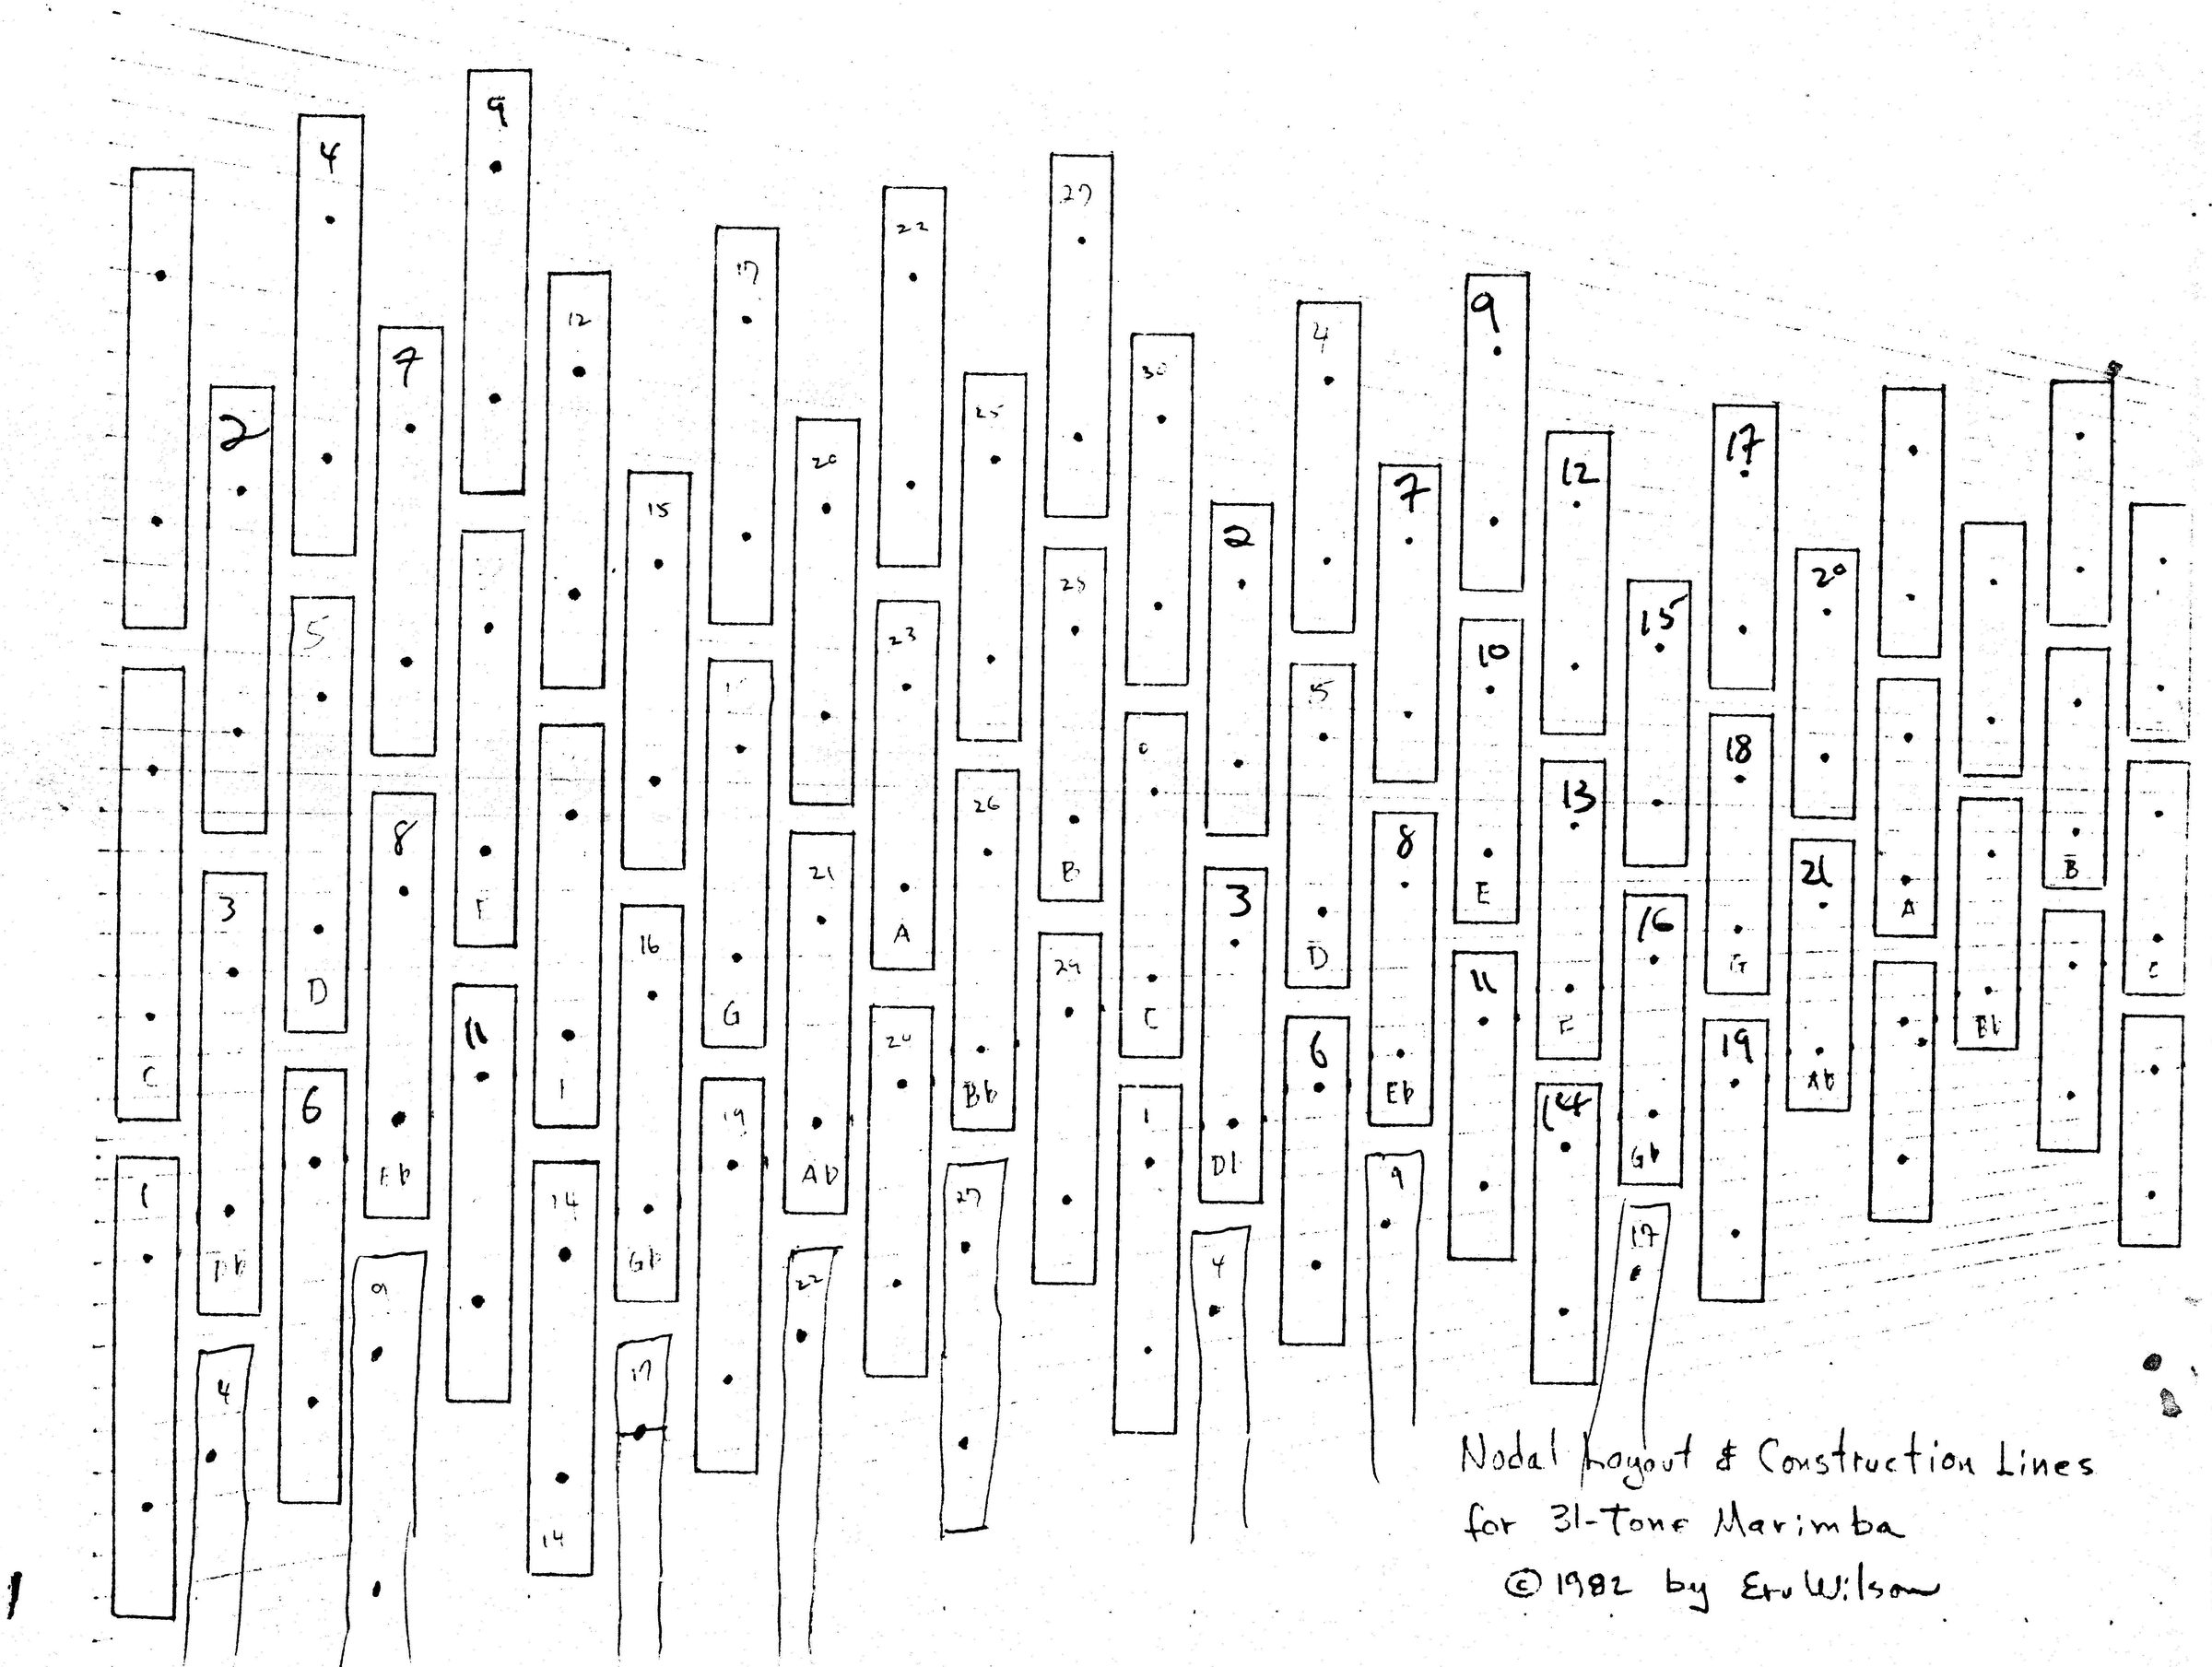 9
4
27
22
17
9
4
12
7
30
2
25
17
12
20
7
15
2
20
28
5
15
23
10
15
5
0
18
26
13
8
B
B
21
8
3
21
E
3
A
A
16
16
11
29
D
G
C
D
F
C
G
24
6
19
Bb
Eb
Ab
6
19
1
14
Gb
Ab
Db
9
1
14
27
Gb
4
17
22
9
17
4
14
Nodal Layout & Construction Lines
for 31-Tone Marimba
© 1982 by Erv Wilson